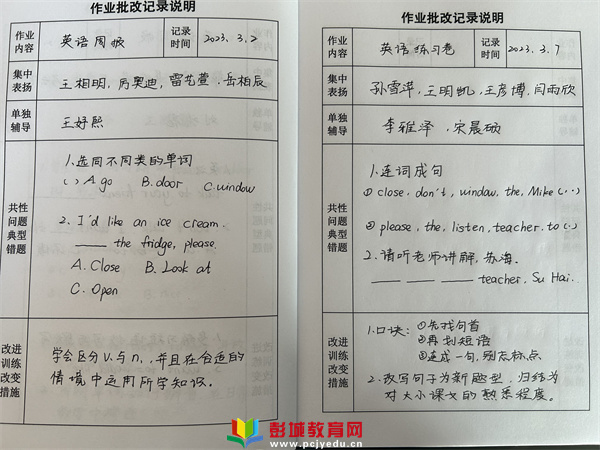 作业批改记录说明
作业内容
英语周报
记录时间
2023.3.2
集中表扬
王相明,厉奥迪,雷艺萱,岳相辰
单独辅导
王妤熙
共性问题典型错题
1.选同不同类的单词
( ) A.go B.door C.window
2. I'd like an ice cream.
____ the fridge, please.
A. Close B. Look at
C. Open
改进训练改变措施
学会区分v.与n.,并且在合适的
情境中运用所学知识。
作业批改记录说明
作业内容
英语练习卷
记录时间
2023.3.7
集中表扬
孙雪萍,王明凯,王彦博,闫雨欣
单独辅导
李雅泽,宋晨硕
共性问题典型错题
1.连词成句
① close, don't, window, the, Mike (,.)
② please, the, listen, teacher, to (.)
2.请听老师讲解,苏海.
____ ____ ____ teacher, Su Hai.
改进训练改变措施
1.口诀:①先找句首
②再划短语
③连成一句,别忘标点
2.改写句子为新题型,归结为
对大小课文的熟悉程度。
彭城教育网
www.pcjyedu.cn